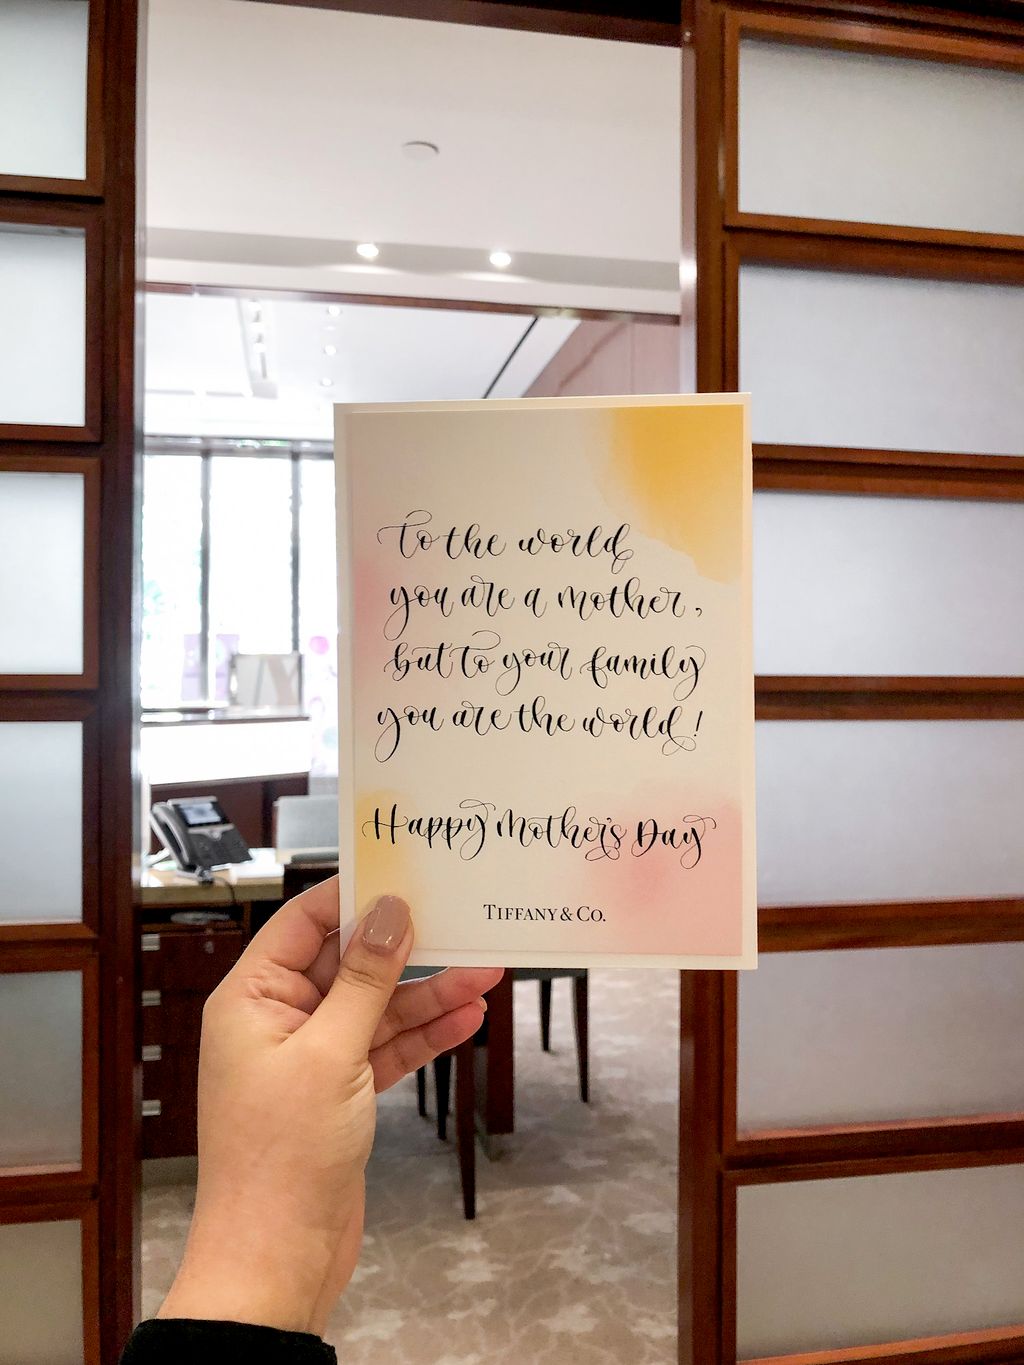 To the world
you are a mother,
but to your family
you are the world!
Happy Mother's Day
TIFFANY & CO.